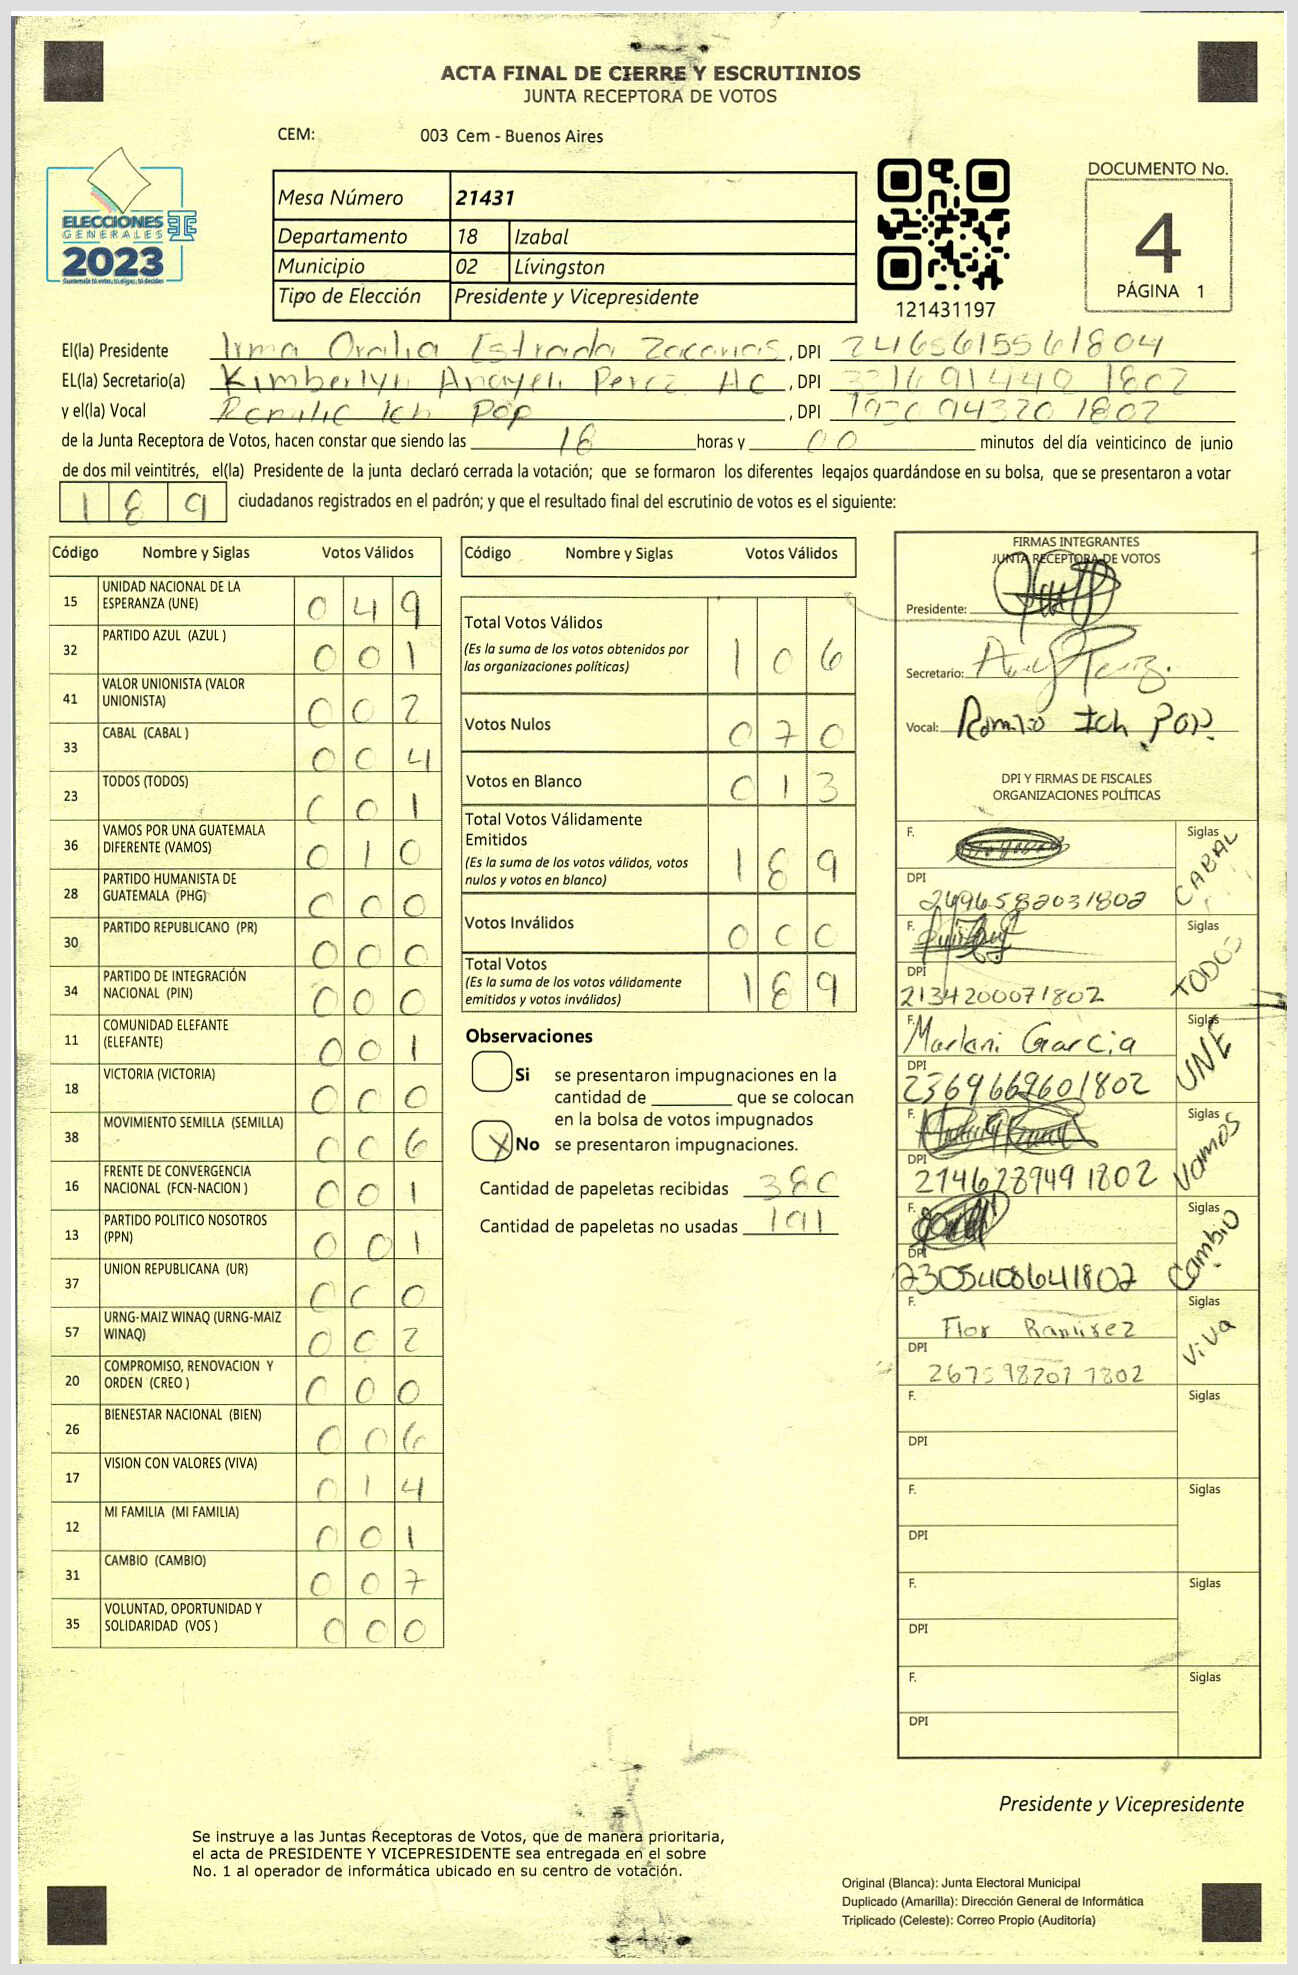 ACTA FINAL DE CIERRE Y ESCRUTINIOS
JUNTA RECEPTORA DE VOTOS
CEM: 003 Cem - Buenos Aires
ELECCIONES
GENERALES
2023
Mesa Número 21431
Departamento 18 Izabal
Municipio 02 Lívingston
Tipo de Elección Presidente y Vicepresidente
121431197
DOCUMENTO No.
4
PÁGINA 1
El(la) Presidente Irma Oralia Estrada Zacarias, DPI 2465615561804
EL(la) Secretario(a) Kimberlyn Anayeli Perez Ac, DPI 3316914401802
y el(la) Vocal Romilio Ich Pop, DPI 1920943201802
de la Junta Receptora de Votos, hacen constar que siendo las 18 horas y 00 minutos del día veinticinco de junio
de dos mil veintitrés, el(la) Presidente de la junta declaró cerrada la votación; que se formaron los diferentes legajos quardándose en su bolsa, que se presentaron a votar
189 ciudadanos registrados en el padrón; y que el resultado final del escrutinio de votos es el siguiente:
Código Nombre y Siglas Votos Válidos
15 UNIDAD NACIONAL DE LA ESPERANZA (UNE) 0 4 9
32 PARTIDO AZUL (AZUL ) 0 0 1
41 VALOR UNIONISTA (VALOR UNIONISTA) 0 0 2
33 CABAL (CABAL ) 0 0 4
23 TODOS (TODOS) 0 0 1
36 VAMOS POR UNA GUATEMALA DIFERENTE (VAMOS) 0 1 0
28 PARTIDO HUMANISTA DE GUATEMALA (PHG) 0 0 0
30 PARTIDO REPUBLICANO (PR) 0 0 0
34 PARTIDO DE INTEGRACIÓN NACIONAL (PIN) 0 0 0
11 COMUNIDAD ELEFANTE (ELEFANTE) 0 0 1
18 VICTORIA (VICTORIA) 0 0 0
38 MOVIMIENTO SEMILLA (SEMILLA) 0 0 6
16 FRENTE DE CONVERGENCIA NACIONAL (FCN-NACION ) 0 0 1
13 PARTIDO POLITICO NOSOTROS (PPN) 0 0 1
37 UNION REPUBLICANA (UR) 0 0 0
57 URNG-MAIZ WINAQ (URNG-MAIZ WINAQ) 0 0 2
20 COMPROMISO, RENOVACION Y ORDEN (CREO ) 0 0 0
26 BIENESTAR NACIONAL (BIEN) 0 0 6
17 VISION CON VALORES (VIVA) 0 1 4
12 MI FAMILIA (MI FAMILIA) 0 0 1
31 CAMBIO (CAMBIO) 0 0 7
35 VOLUNTAD, OPORTUNIDAD Y SOLIDARIDAD (VOS ) 0 0 0
Código Nombre y Siglas Votos Válidos
Total Votos Válidos 1 0 6
(Es la suma de los votos obtenidos por
las organizaciones políticas)
Votos Nulos 0 7 0
Votos en Blanco 0 1 3
Total Votos Válidamente
Emitidos 1 8 9
(Es la suma de los votos válidos, votos
nulos y votos en blanco)
Votos Inválidos 0 0 0
Total Votos 1 8 9
(Es la suma de los votos válidamente
emitidos y votos inválidos)
Observaciones
Si se presentaron impugnaciones en la
cantidad de ________ que se colocan
en la bolsa de votos impugnados
X No se presentaron impugnaciones.
Cantidad de papeletas recibidas 380
Cantidad de papeletas no usadas 191
FIRMAS INTEGRANTES
JUNTA RECEPTORA DE VOTOS
Presidente:
Secretario:
Vocal: Romilio Ich Pop.
DPI Y FIRMAS DE FISCALES
ORGANIZACIONES POLÍTICAS
F. Siglas CABAL
DPI 2496582031802
F. Siglas TODOS
DPI 2134200071802
F. Marleni Garcia Siglas UNE
DPI 2369669601802
F. Siglas Vamos
DPI 2146289491802
F. Siglas Cambio
DPI 2305408641802
F. Flor Ramirez Siglas ViVa
DPI
F. Siglas
DPI
F. Siglas
DPI
F. Siglas
DPI
F. Siglas
DPI
Presidente y Vicepresidente
Se instruye a las Juntas Receptoras de Votos, que de manera prioritaria,
el acta de PRESIDENTE Y VICEPRESIDENTE sea entregada en el sobre
No. 1 al operador de informática ubicado en su centro de votación.
Original (Blanca): Junta Electoral Municipal
Duplicado (Amarilla): Dirección General de Informática
Triplicado (Celeste): Correo Propio (Auditoría)